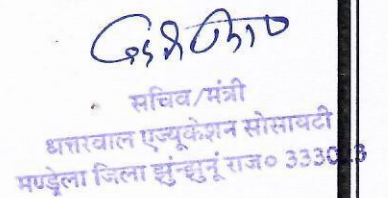 सचिव/मंत्री
धत्तरवाल एज्यूकेशन सोसायटी
मण्ड्रेला जिला झुंन्झुनूं राज० 333023